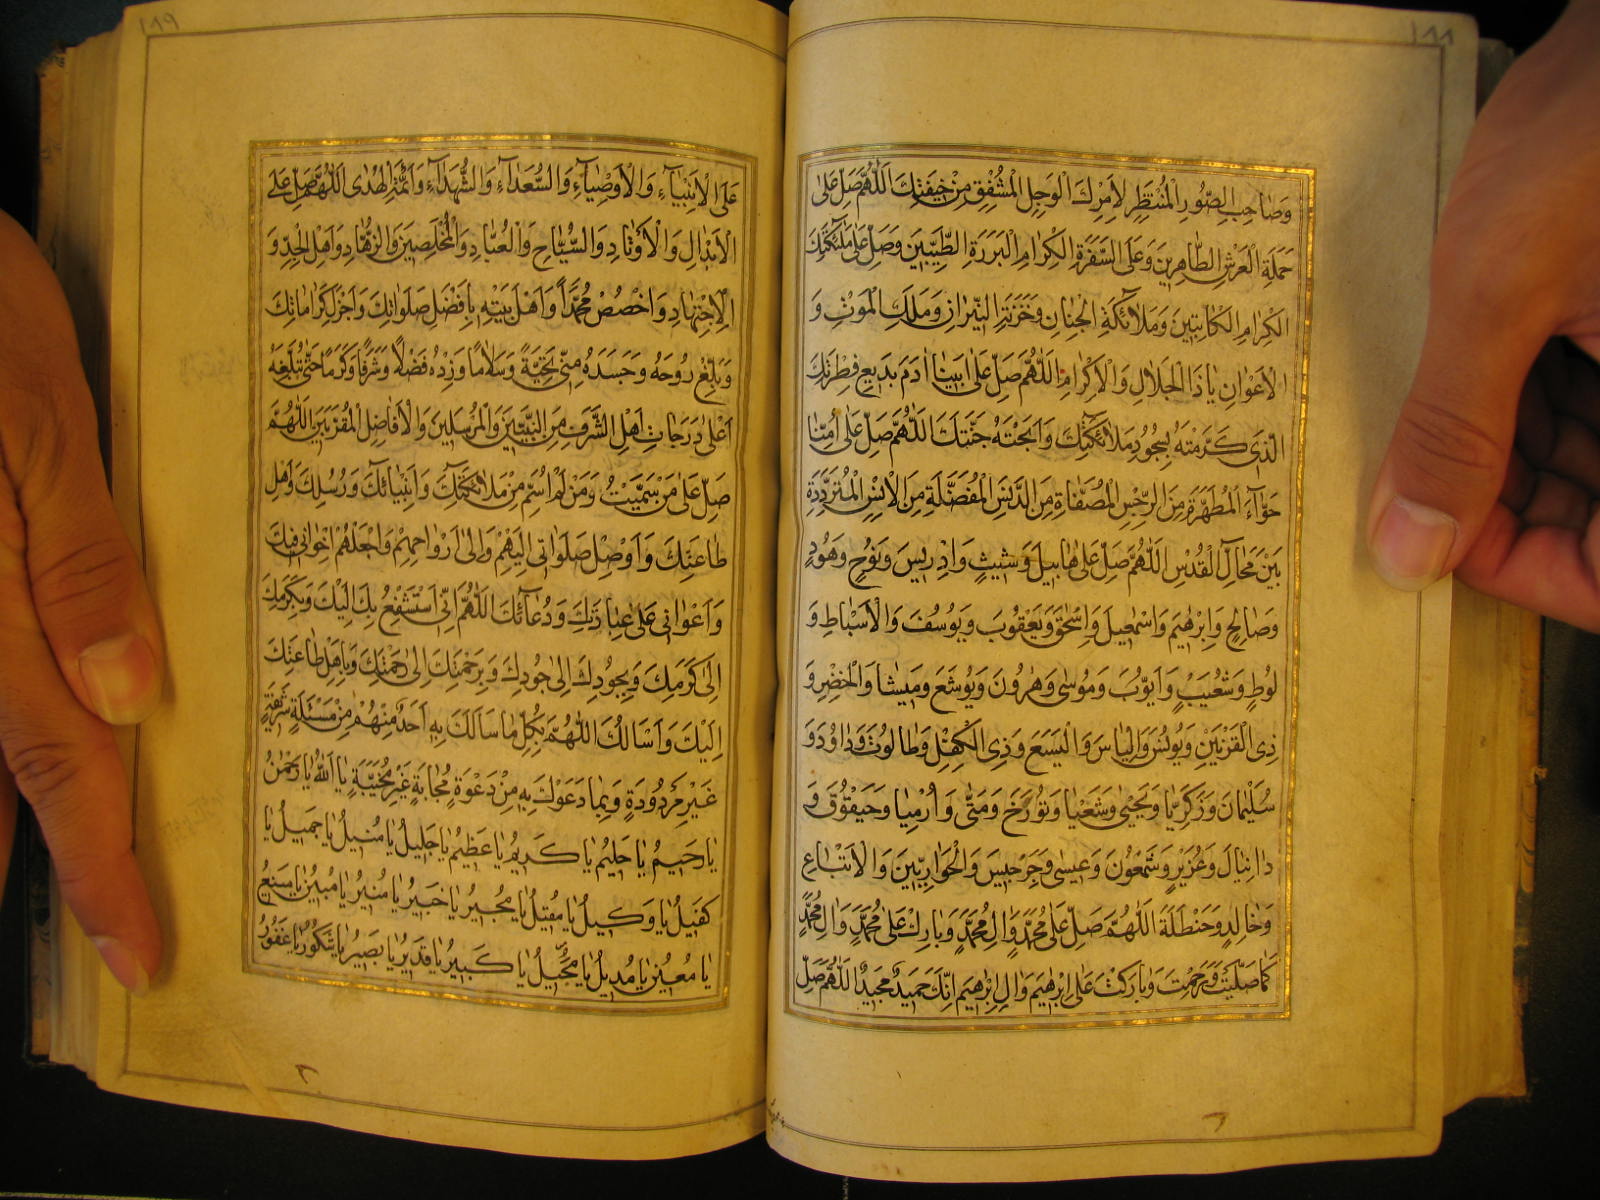 ١٨٨
وَصَاحِبِ الصُّورِ الْمُنْتَظِرِ لِأَمْرِكَ الْوَجِلِ الْمُشْفِقِ مِنْ خِيفَتِكَ اَللّٰهُمَّ صَلِّ عَلٰى
حَمَلَةِ الْعَرْشِ الطَّاهِرِينَ وَعَلَى السَّفَرَةِ الْكِرَامِ الْبَرَرَةِ الطَّيِّبِينَ وَصَلِّ عَلٰى مَلٰئِكَتِكَ
الْكِرَامِ الْكَاتِبِينَ وَمَلَائِكَةِ الْجِنَانِ وَخَزَنَةِ النِّيرَانِ وَمَلَكِ الْمَوْتِ وَ
الْأَعْوَانِ يَا ذَا الْجَلَالِ وَالْاِكْرَامِ اَللّٰهُمَّ صَلِّ عَلٰى اَبِينَا اٰدَمَ بَدِيعِ فِطْرَتِكَ
الَّذِى كَرَّمْتَهُ بِسُجُودِ مَلَائِكَتِكَ وَاَبَحْتَهُ جَنَّتَكَ اَللّٰهُمَّ صَلِّ عَلٰى اُمِّنَا
حَوَّاءَ الْمُطَهَّرَةِ مِنَ الرِّجْسِ الْمُصَفَّاةِ مِنَ الدَّنَسِ الْمُفَضَّلَةِ مِنَ الْاِنْسِ الْمُتَرَدِّدَةِ
بَيْنَ مَحَالِّ الْقُدْسِ اَللّٰهُمَّ صَلِّ عَلٰى هَابِيلَ وَشِيثٍ وَاِدْرِيسَ وَنُوحٍ وَهُودٍ
وَصَالِحٍ وَاِبْرٰهِيمَ وَاِسْمٰعِيلَ وَاِسْحٰقَ وَيَعْقُوبَ وَيُوسُفَ وَالْاَسْبَاطِ وَ
لُوطٍ وَشُعَيْبٍ وَاَيُّوبَ وَمُوسٰى وَهٰرُونَ وَيُوشَعَ وَمِيشَا وَالْخِضْرِ وَ
ذِى الْقَرْنَيْنِ وَيُونُسَ وَاِلْيَاسَ وَالْيَسَعَ وَذِى الْكِفْلِ وَطَالُوتَ وَدَاوُدَ وَ
سُلَيْمَانَ وَزَكَرِيَّا وَيَحْيٰى وَشَعْيَا وَتُورَخَ وَمَتّٰى وَاُرْمِيَا وَحَيْقُوقَ وَ
دَانِيَالَ وَعُزَيْرٍ وَشَمْعُونَ وَعِيسٰى وَجِرْجِيسَ وَالْحَوَارِيِّينَ وَالْاَتْبَاعِ
وَخَالِدٍ وَحَنْظَلَةَ اَللّٰهُمَّ صَلِّ عَلٰى مُحَمَّدٍ وَاٰلِ مُحَمَّدٍ وَبَارِكْ عَلٰى مُحَمَّدٍ وَاٰلِ مُحَمَّدٍ
كَمَا صَلَّيْتَ وَرَحِمْتَ وَبَارَكْتَ عَلٰى اِبْرٰهِيمَ وَاٰلِ اِبْرٰهِيمَ اِنَّكَ حَمِيدٌ مَجِيدٌ اَللّٰهُمَّ صَلِّ
١٨٩
عَلَى الْاَنْبِيَاءِ وَالْاَوْصِيَاءِ وَالسُّعَدَاءِ وَالشُّهَدَاءِ وَاَئِمَّةِ الْهُدٰى اَللّٰهُمَّ صَلِّ عَلَى
الْاَبْدَالِ وَالْاَوْتَادِ وَالسُّيَّاحِ وَالْعُبَّادِ وَالْمُخْلِصِينَ وَالزُّهَّادِ وَاَهْلِ الْجِدِّ وَ
الْاِجْتِهَادِ وَاخْصُصْ مُحَمَّداً وَاَهْلَ بَيْتِهِ بِاَفْضَلِ صَلَوَاتِكَ وَاَجْزَلِ كَرَامَاتِكَ
وَبَلِّغْ رُوحَهُ وَجَسَدَهُ مِنِّى تَحِيَّةً وَسَلَامًا وَزِدْهُ فَضْلًا وَشَرَفًا وَكَرَمًا حَتّٰى تُبَلِّغَهُ
اَعْلٰى دَرَجَاتِ اَهْلِ الشَّرَفِ مِنَ النَّبِيِّينَ وَالْمُرْسَلِينَ وَالْاَفَاضِلِ الْمُقَرَّبِينَ اَللّٰهُمَّ
صَلِّ عَلٰى مَنْ سَمَّيْتُ وَمَنْ لَمْ اُسَمِّ مِنْ مَلَائِكَتِكَ وَاَنْبِيَائِكَ وَرُسُلِكَ وَاَهْلِ
طَاعَتِكَ وَاَوْصِلْ صَلَوَاتِى اِلَيْهِمْ وَاِلٰى اَرْوَاحِهِمْ وَاجْعَلْهُمْ اِخْوَانِى فِيكَ
وَاَعْوَانِى عَلٰى عِبَادَتِكَ وَدُعَائِكَ اَللّٰهُمَّ اِنِّى اَسْتَشْفِعُ بِكَ اِلَيْكَ وَبِكَرَمِكَ
اِلٰى كَرَمِكَ وَبِجُودِكَ اِلٰى جُودِكَ وَبِرَحْمَتِكَ اِلٰى رَحْمَتِكَ وَبِاَهْلِ طَاعَتِكَ
اِلَيْكَ وَاَسْاَلُكَ اَللّٰهُمَّ بِكُلِّ مَا سَاَلَكَ بِهِ اَحَدٌ مِنْهُمْ مِنْ مَسْئَلَةٍ شَرِيفَةٍ
غَيْرِ مَرْدُودَةٍ وَبِمَا دَعَوْكَ بِهِ مِنْ دَعْوَةٍ مُجَابَةٍ غَيْرِ مُخَيَّبَةٍ يَا اَللّٰهُ يَا رَحْمٰنُ
يَا رَحِيمُ يَا حَلِيمُ يَا كَرِيمُ يَا عَظِيمُ يَا جَلِيلُ يَا مُنِيلُ يَا جَمِيلُ يَا
كَفِيلُ يَا وَكِيلُ يَا مُقِيلُ يَا مُجِيرُ يَا خَبِيرُ يَا مُنِيرُ يَا مُبِيرُ يَا مَنِيعُ
يَا مُعِينُ يَا مُدِيلُ يَا مُحِيلُ يَا كَبِيرُ يَا قَدِيرُ يَا بَصِيرُ يَا شَكُورُ يَا غَفُورُ